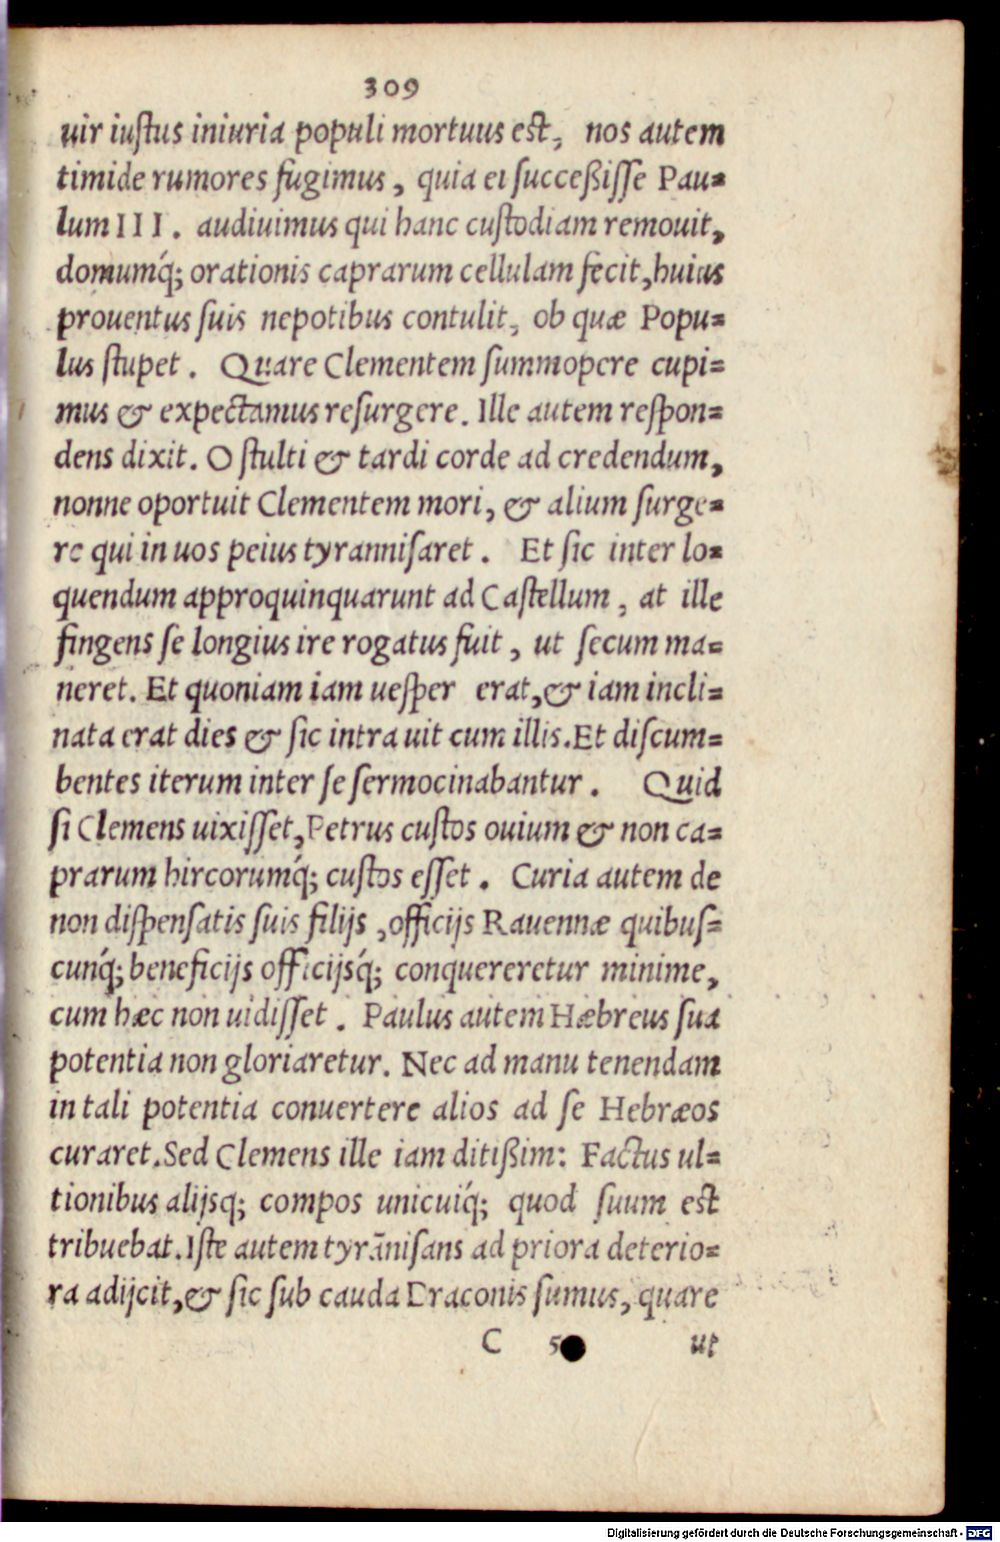 309
uir iuſtus iniuria populi mortuus eſt, nos autem
timide rumores fugimus, quia ei ſucceßiſſe Pau=
lum III. audiuimus qui hanc cuſtodiam remouit,
domumq́; orationis caprarum cellulam fecit, huius
prouentus ſuis nepotibus contulit, ob quæ Popu=
lus ſtupet. Quare Clementem ſummopere cupi=
mus & expectamus reſurgere. Ille autem reſpon=
dens dixit. O ſtulti & tardi corde ad credendum,
nonne oportuit Clementem mori, & alium ſurge=
re qui in uos peius tyranniſaret. Et ſic inter lo=
quendum approquinquarunt ad Caſtellum, at ille
fingens ſe longius ire rogatus fuit, ut ſecum ma=
neret. Et quoniam iam ueſper erat, & iam incli=
nata erat dies & ſic intra uit cum illis. Et diſcum=
bentes iterum inter ſe ſermocinabantur. Quid
ſi Clemens uixiſſet, Petrus cuſtos ouium & non ca=
prarum hircorumq́; cuſtos eſſet. Curia autem de
non diſpenſatis ſuis filijs, officijs Rauennæ quibuſ=
cunq́; beneficijs officijsq́; conquereretur minime,
cum hæc non uidiſſet. Paulus autem Hæbreus ſua
potentia non gloriaretur. Nec ad manu tenendam
in tali potentia conuertere alios ad ſe Hebræos
curaret. Sed Clemens ille iam ditißim: Factus ul=
tionibus alijsq; compos unicuiq́; quod ſuum eſt
tribuebat. Iſte autem tyrāniſans ad priora deterio=
ra adijcit, & ſic ſub cauda Draconis ſumus, quare
C 5 ut
Digitalisierung gefördert durch die Deutsche Forschungsgemeinschaft - DFG